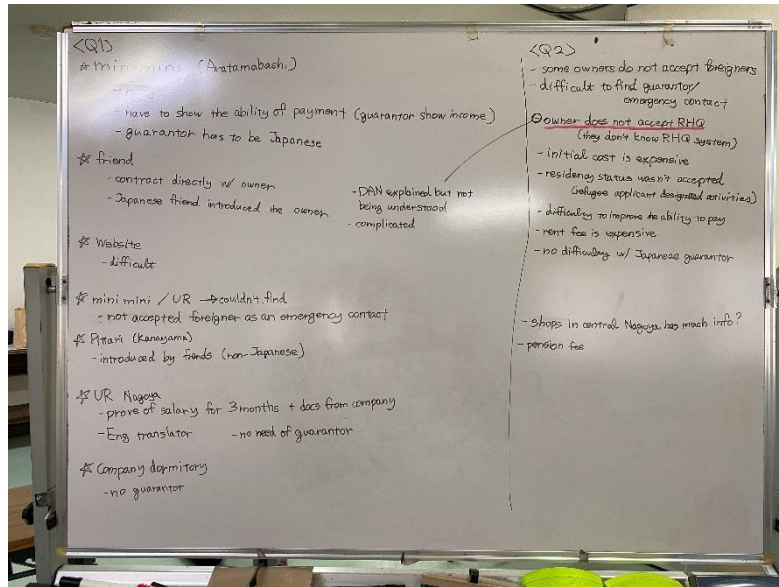 <Q1>
☆ mini mini (Aratamabashi)
- have to show the ability of payment (guarantor show income)
- guarantor has to be Japanese
☆ friend
- contract directly w/ owner
- Japanese friend introduced the owner
☆ Website
- difficult
☆ mini mini / UR → couldn't find
- not accepted foreigner as an emergency contact
☆ Pittari (Kanayama)
- introduced by friends (non-Japanese)
☆ UR Nagoya
- prove of salary for 3 months + docs from company
- Eng translator - no need of guarantor
☆ Company dormitory
- no guarantor
- DAN explained but not
being understood
- complicated
<Q2>
- some owners do not accept foreigners
- difficult to find guarantor/
emergency contact
owner does not accept RHQ
(they don't know RHQ system)
- initial cost is expensive
- residency status wasn't accepted
(refugee applicant designated activities)
- difficulty to improve the ability to pay
- rent fee is expensive
- no difficulty w/ Japanese guarantor
- shops in central Nagoya has much info?
- pension fee